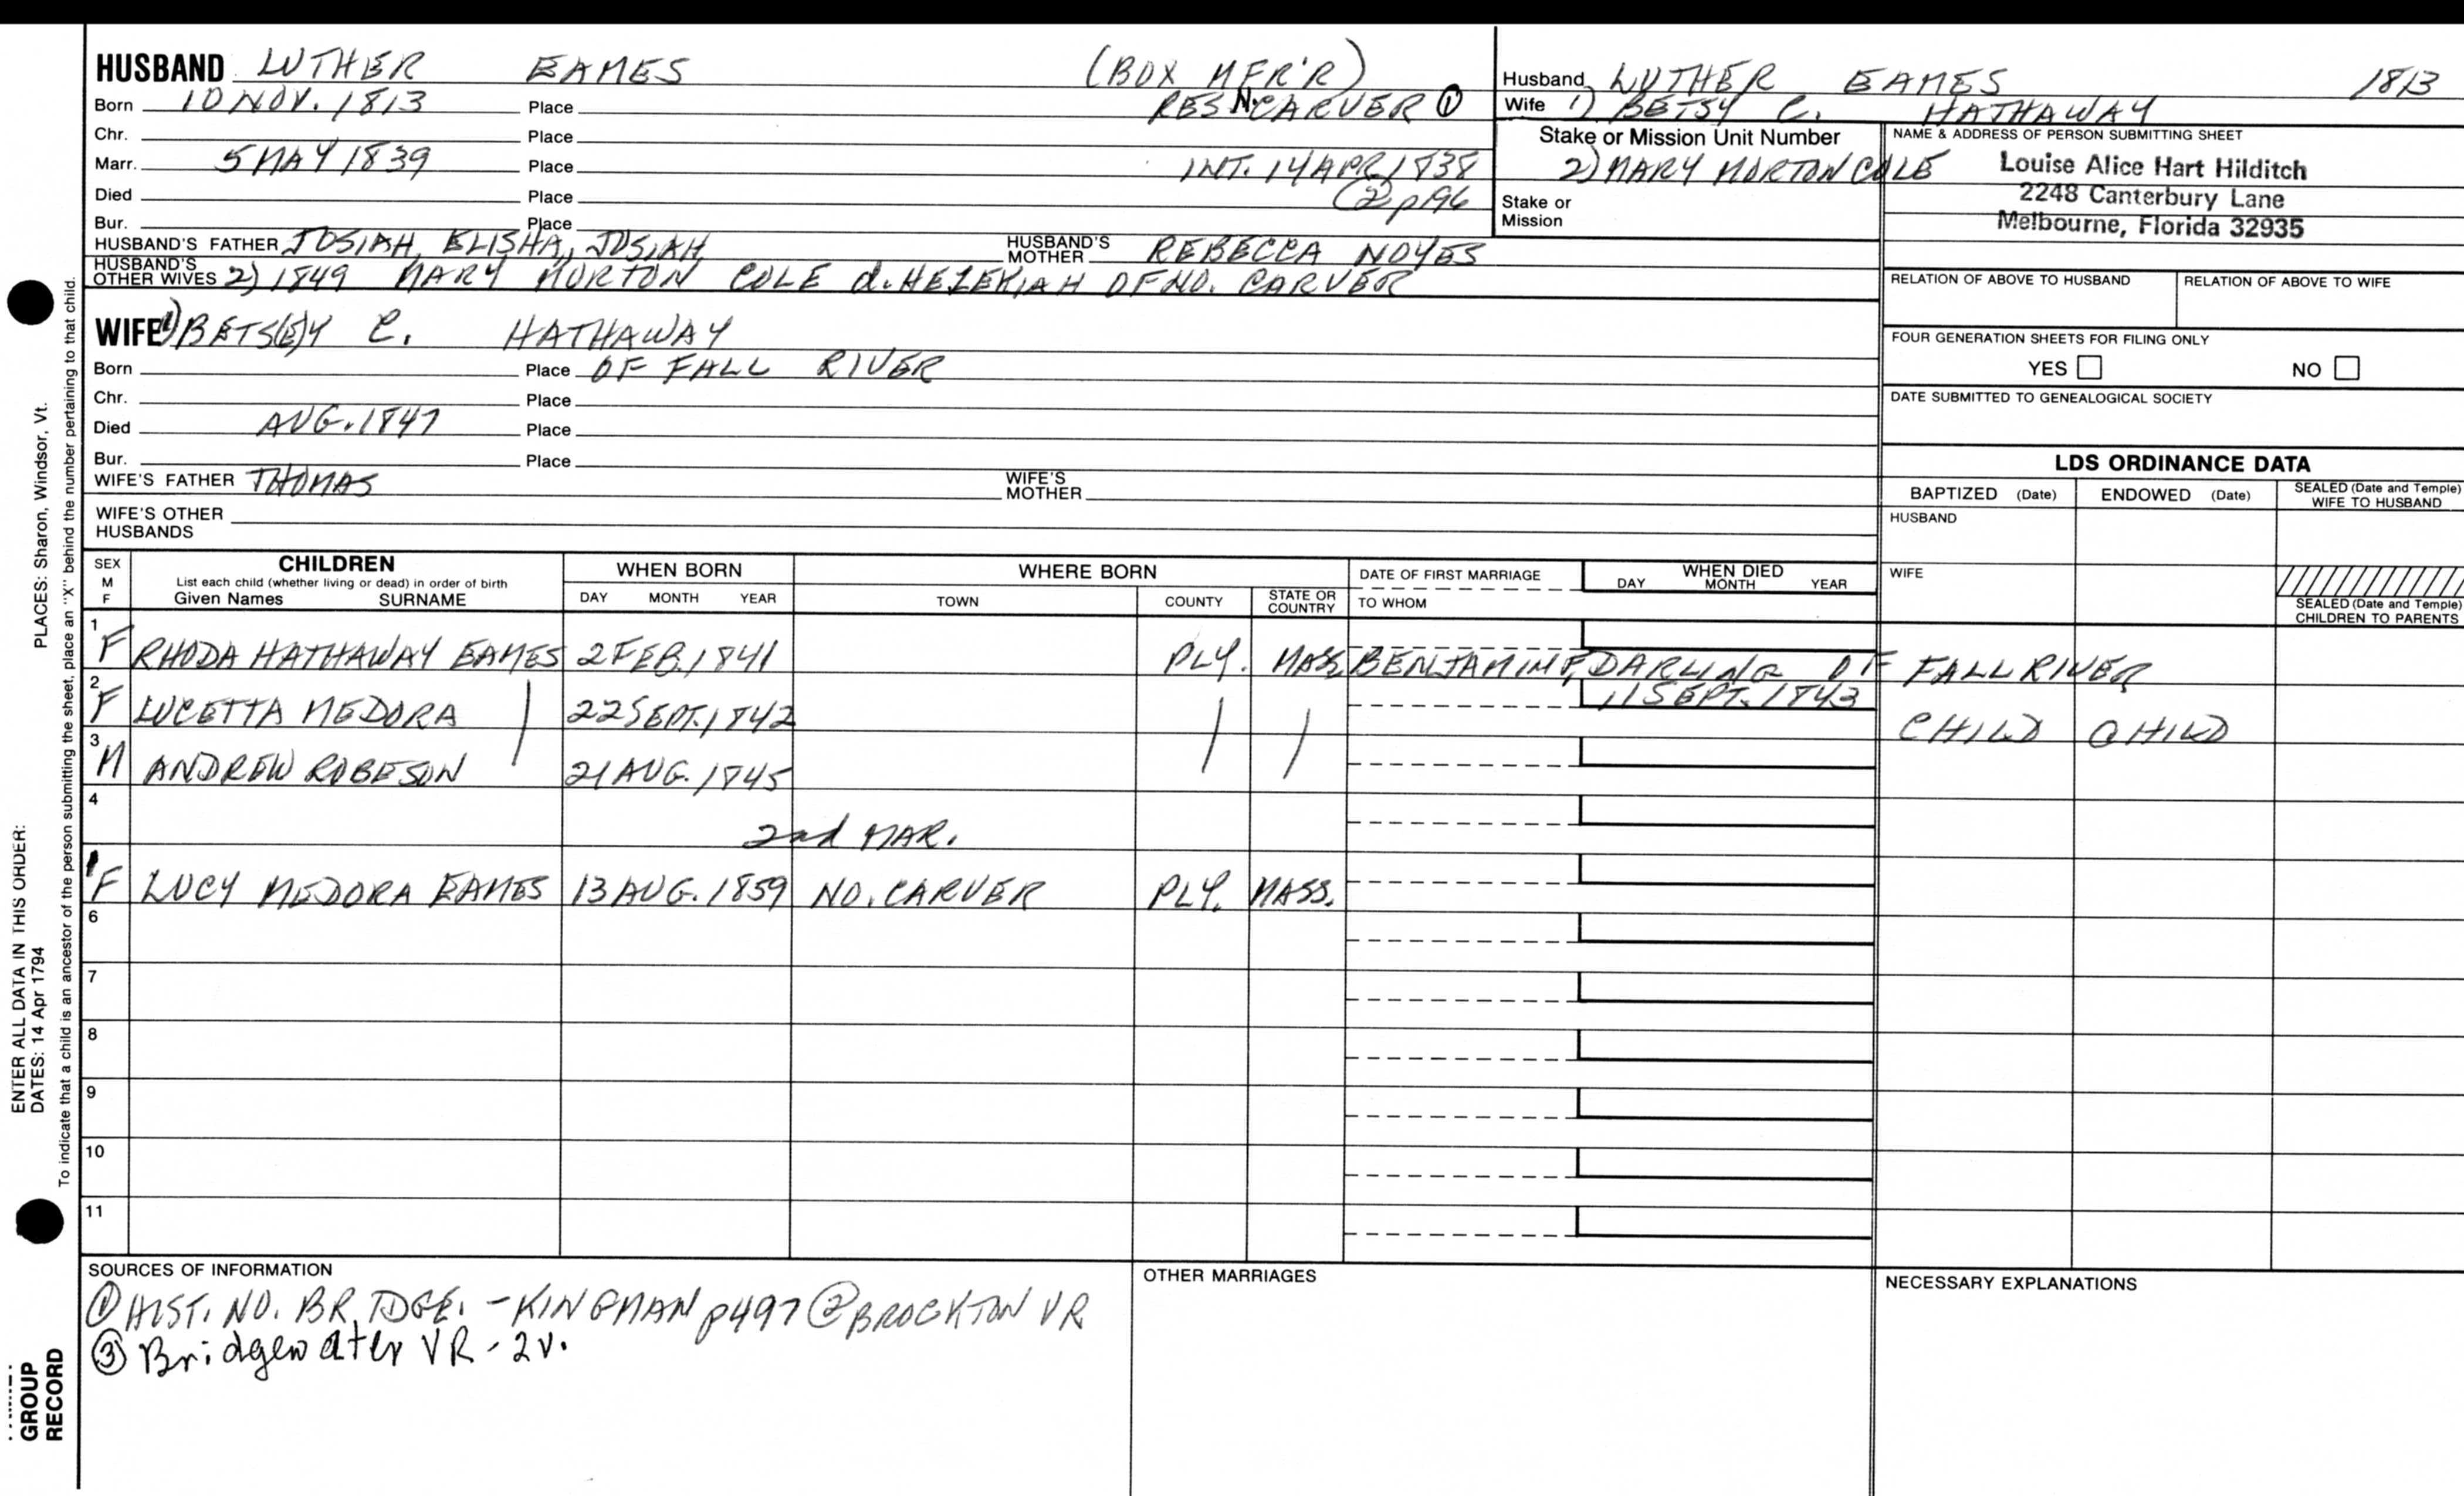 HUSBAND LUTHER EAMES (BOX MFR'R)
Born 10 NOV. 1813 Place RES N. CARVER ①
Chr. Place
Marr. 5 MAY 1839 Place INT. 14 APR 1838
Died Place ② p196
Bur. Place
HUSBAND'S FATHER JOSIAH, ELISHA, JOSIAH HUSBAND'S MOTHER REBECCA NOYES
HUSBAND'S OTHER WIVES 2) 1849 MARY MORTON COLE d. HEZEKIAH OF NO. CARVER
WIFE 1) BETS(E)Y C. HATHAWAY
Born Place OF FALL RIVER
Chr. Place
Died AUG. 1847 Place
Bur. Place
WIFE'S FATHER THOMAS WIFE'S MOTHER
WIFE'S OTHER HUSBANDS
Husband LUTHER EAMES 1813
Wife 1) BETSY C. HATHAWAY
Stake or Mission Unit Number
2) MARY MORTON COLE
Stake or Mission
NAME & ADDRESS OF PERSON SUBMITTING SHEET
Louise Alice Hart Hilditch
2248 Canterbury Lane
Melbourne, Florida 32935
RELATION OF ABOVE TO HUSBAND RELATION OF ABOVE TO WIFE
FOUR GENERATION SHEETS FOR FILING ONLY
YES NO
DATE SUBMITTED TO GENEALOGICAL SOCIETY
LDS ORDINANCE DATA
BAPTIZED (Date) ENDOWED (Date) SEALED (Date and Temple) WIFE TO HUSBAND
HUSBAND
WIFE
SEALED (Date and Temple) CHILDREN TO PARENTS
SEX M F CHILDREN List each child (whether living or dead) in order of birth Given Names SURNAME WHEN BORN DAY MONTH YEAR WHERE BORN TOWN COUNTY STATE OR COUNTRY DATE OF FIRST MARRIAGE TO WHOM WHEN DIED DAY MONTH YEAR
1 F RHODA HATHAWAY EAMES 2 FEB. 1841 PLY. MASS. BENJAMIN F. DARLING OF FALL RIVER
2 F LUCETTA MEDORA 22 SEPT. 1842 11 SEPT. 1843 CHILD CHILD
3 M ANDREW ROBESON 21 AUG. 1845
4
2nd MAR.
1 F LUCY MEDORA EAMES 13 AUG. 1859 NO. CARVER PLY. MASS.
6
7
8
9
10
11
SOURCES OF INFORMATION
① HIST. NO. BRIDGE. - KINGMAN p497 ② BROCKTON VR
③ Bridgewater VR - 2v.
OTHER MARRIAGES
NECESSARY EXPLANATIONS
PLACES: Sharon, Windsor, Vt.
ENTER ALL DATA IN THIS ORDER:
DATES: 14 Apr 1794
To indicate that a child is an ancestor of the person submitting the sheet, place an "X" behind the number pertaining to that child.
GROUP
RECORD